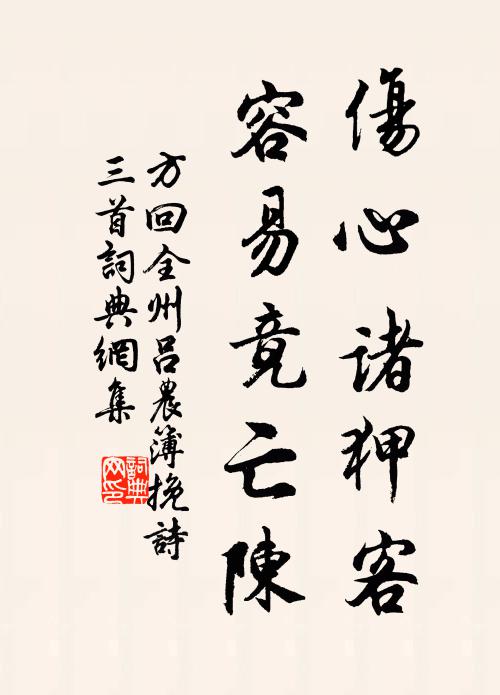 傷心諸狎客
容易竟亡陳
方回全州呂農簿挽詩
三首詞典網集
詞典
网印